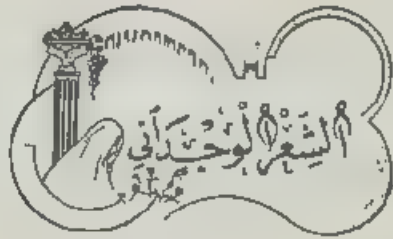 الشِعْرُ الوُجْدَاني